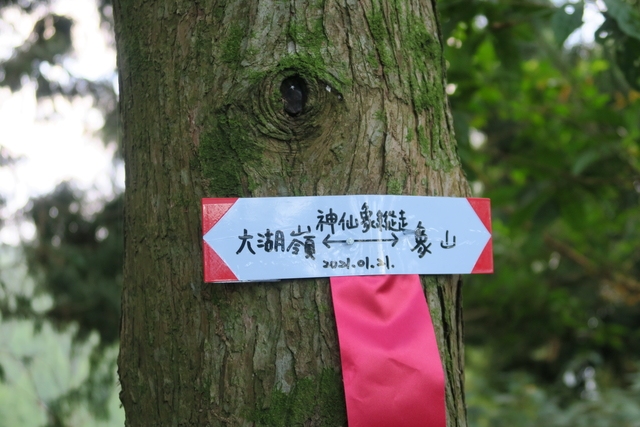 神仙象縱走
六湖嶺 ←→ 象山
2021.01.21.